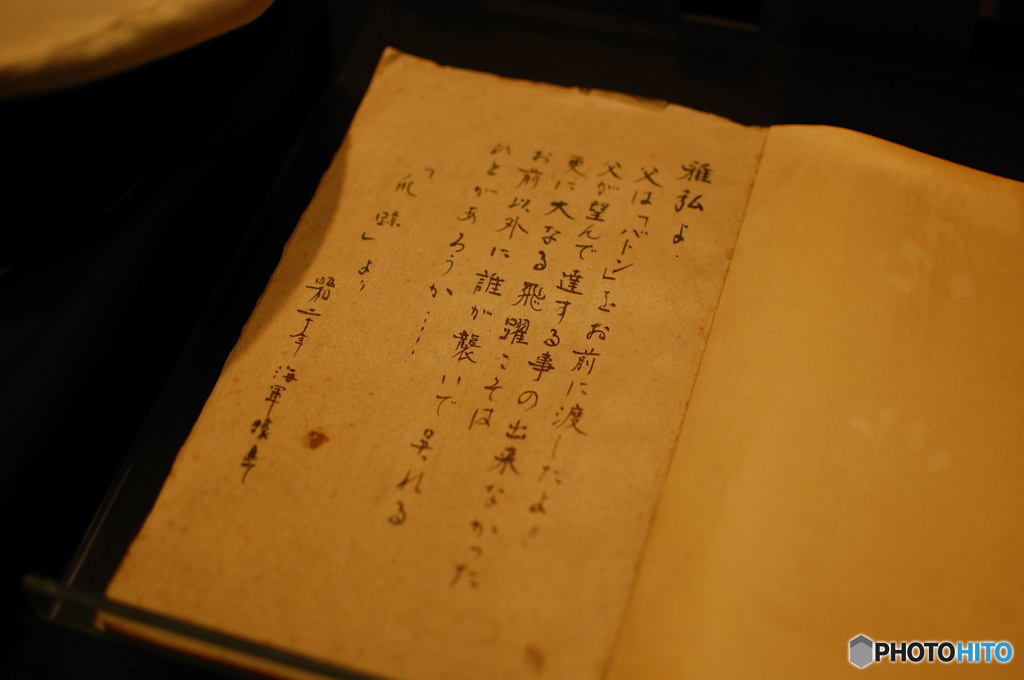 雅弘よ.
父は「バトン」をお前に渡したよ!
父が望んで達する事の出来なかった
更に大なる飛躍こそは
お前以外に誰が襲いで呉れる
ひとがあろうか……
「爪跡」より
昭二十年 海軍
PHOTOHITO